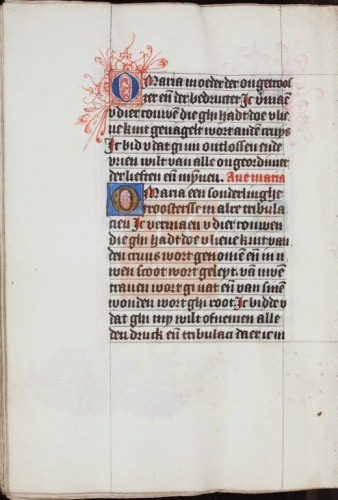 O Maria moeder der ongetroos
ter en̄ der bedructer Ic v̄maē
v dier rouwen die ghi hadt doe v lie
ue kint genagelt wort andē cruys
Ic bid v dat gi mi ontlossen ende
vrien wilt van alle ongeordineer
der lieften en̄ mȳnen. Aue maria
O Maria een sonderlinghe
troosterisse in alre tribula
cien Ic vermaen v dier rouwen
die ghi hadt doe v lieue kint van
den cruus wort genomē en̄ in u
wen scoot wort geleyt. van uwē
tranen wort gi nat en̄ van sinē
wonden wort ghi root Ic bidde v
dat ghi my wilt ofnemen alle
den druck en̄ tribulaci daer ic in